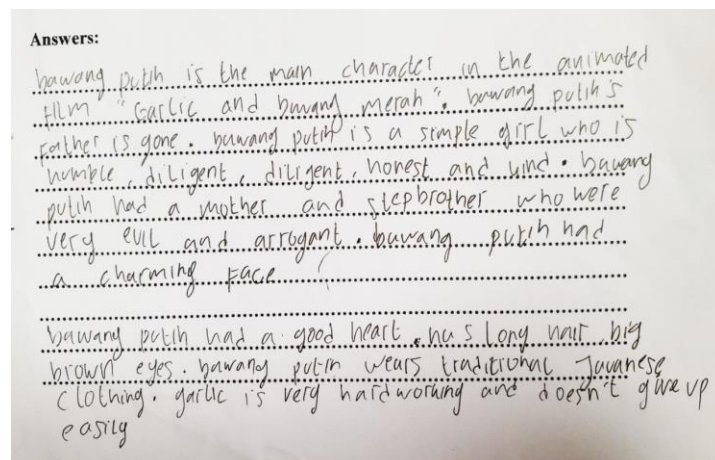 Answers:
bawang putih is the main character in the animated
film "Garlic and bawang merah". bawang putih's
father is gone. bawang putih is a simple girl who is
humble, diligent, diligent, honest and kind. bawang
putih had a mother and stepbrother who were
very evil and arrogant. bawang putih had
a charming face
bawang putih had a good heart, has long hair, big
brown eyes. bawang putih wears traditional Javanese
clothing. garlic is very hardworking and doesn't give up
easily